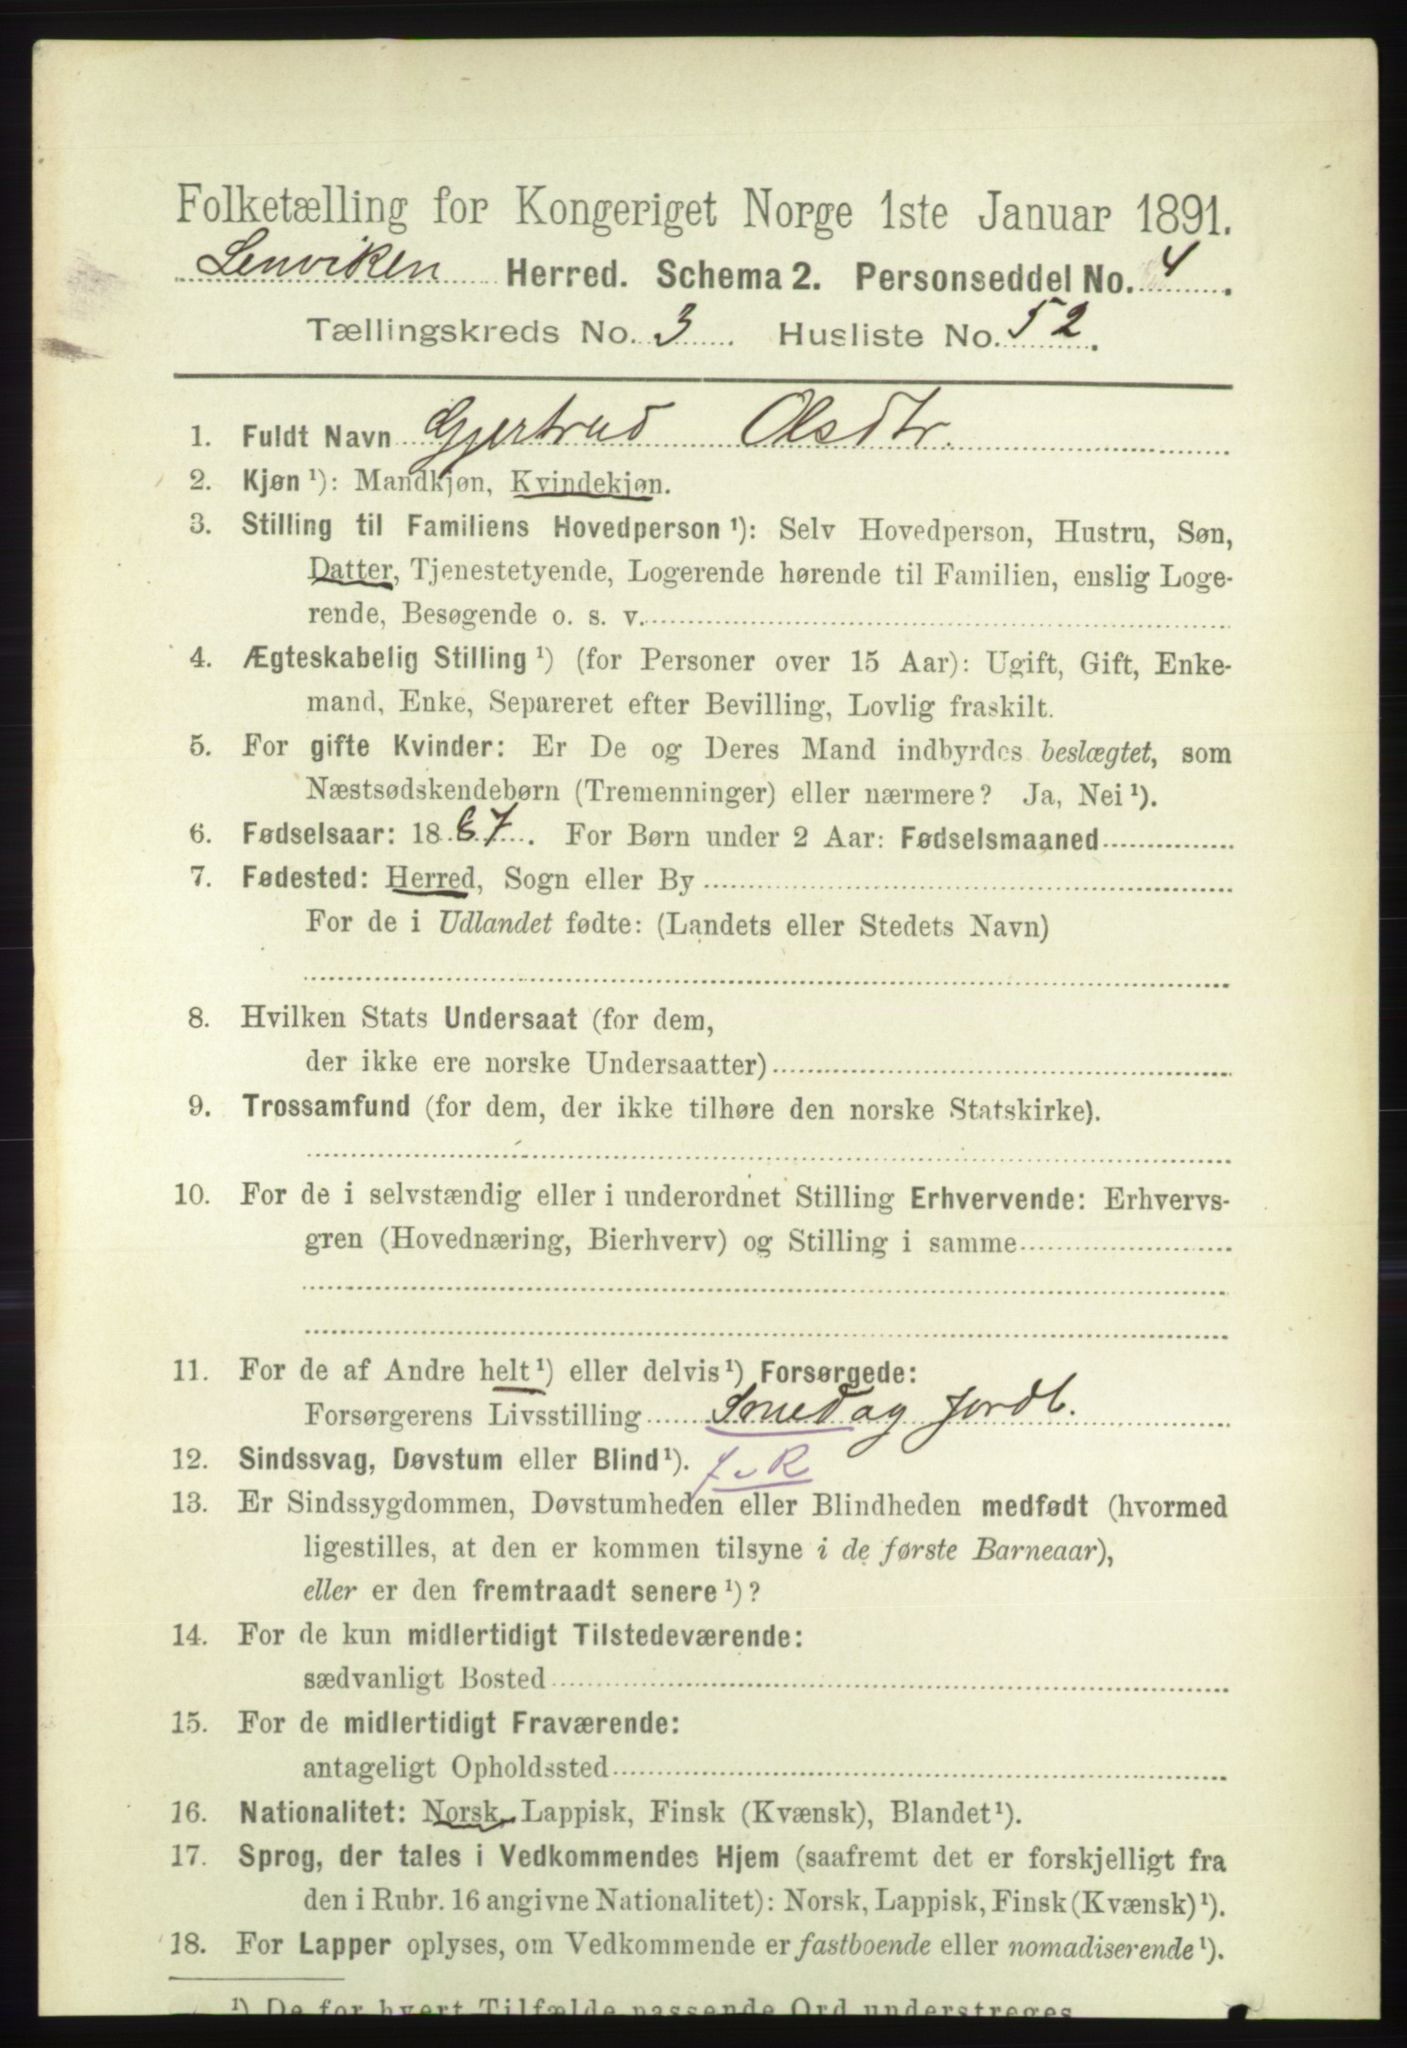 Folketælling for Kongeriget Norge 1ste Januar 1891.
Lenviken Herred. Schema 2. Personseddel No. 4.
Tællingskreds No. 3. Husliste No. 52.
1. Fuldt Navn Gjertrud Olsdtr.
2. Kjøn ¹): Mandkjøn, Kvindekjøn.
3. Stilling til Familiens Hovedperson ¹): Selv Hovedperson, Hustru, Søn,
Datter, Tjenestetyende, Logerende hørende til Familien, enslig Loge-
rende, Besøgende o. s. v.
4. Ægteskabelig Stilling ¹) (for Personer over 15 Aar): Ugift, Gift, Enke-
mand, Enke, Separeret efter Bevilling, Lovlig fraskilt.
5. For gifte Kvinder: Er De og Deres Mand indbyrdes beslægtet, som
Næstsødskendebørn (Tremenninger) eller nærmere? Ja, Nei ¹).
6. Fødselsaar: 1887. For Børn under 2 Aar: Fødselsmaaned
7. Fødested: Herred, Sogn eller By
For de i Udlandet fødte: (Landets eller Stedets Navn)
8. Hvilken Stats Undersaat (for dem,
der ikke ere norske Undersaatter)
9. Trossamfund (for dem, der ikke tilhøre den norske Statskirke).
10. For de i selvstændig eller i underordnet Stilling Erhvervende: Erhvervs-
gren (Hovednæring, Bierhverv) og Stilling i samme
11. For de af Andre helt ¹) eller delvis ¹) Forsørgede:
Forsørgerens Livsstilling Smed og Jordb.
12. Sindssvag, Døvstum eller Blind ¹).
13. Er Sindssygdommen, Døvstumheden eller Blindheden medfødt (hvormed
ligestilles, at den er kommen tilsyne i de første Barneaar),
eller er den fremtraadt senere ¹)?
14. For de kun midlertidigt Tilstedeværende:
sædvanligt Bosted
15. For de midlertidigt Fraværende:
antageligt Opholdssted
16. Nationalitet: Norsk, Lappisk, Finsk (Kvænsk), Blandet ¹).
17. Sprog, der tales i Vedkommendes Hjem (saafremt det er forskjelligt fra
den i Rubr. 16 angivne Nationalitet): Norsk, Lappisk, Finsk (Kvænsk) ¹).
18. For Lapper oplyses, om Vedkommende er fastboende eller nomadiserende ¹).
¹) De for hvert Tilfælde passende Ord understreges.